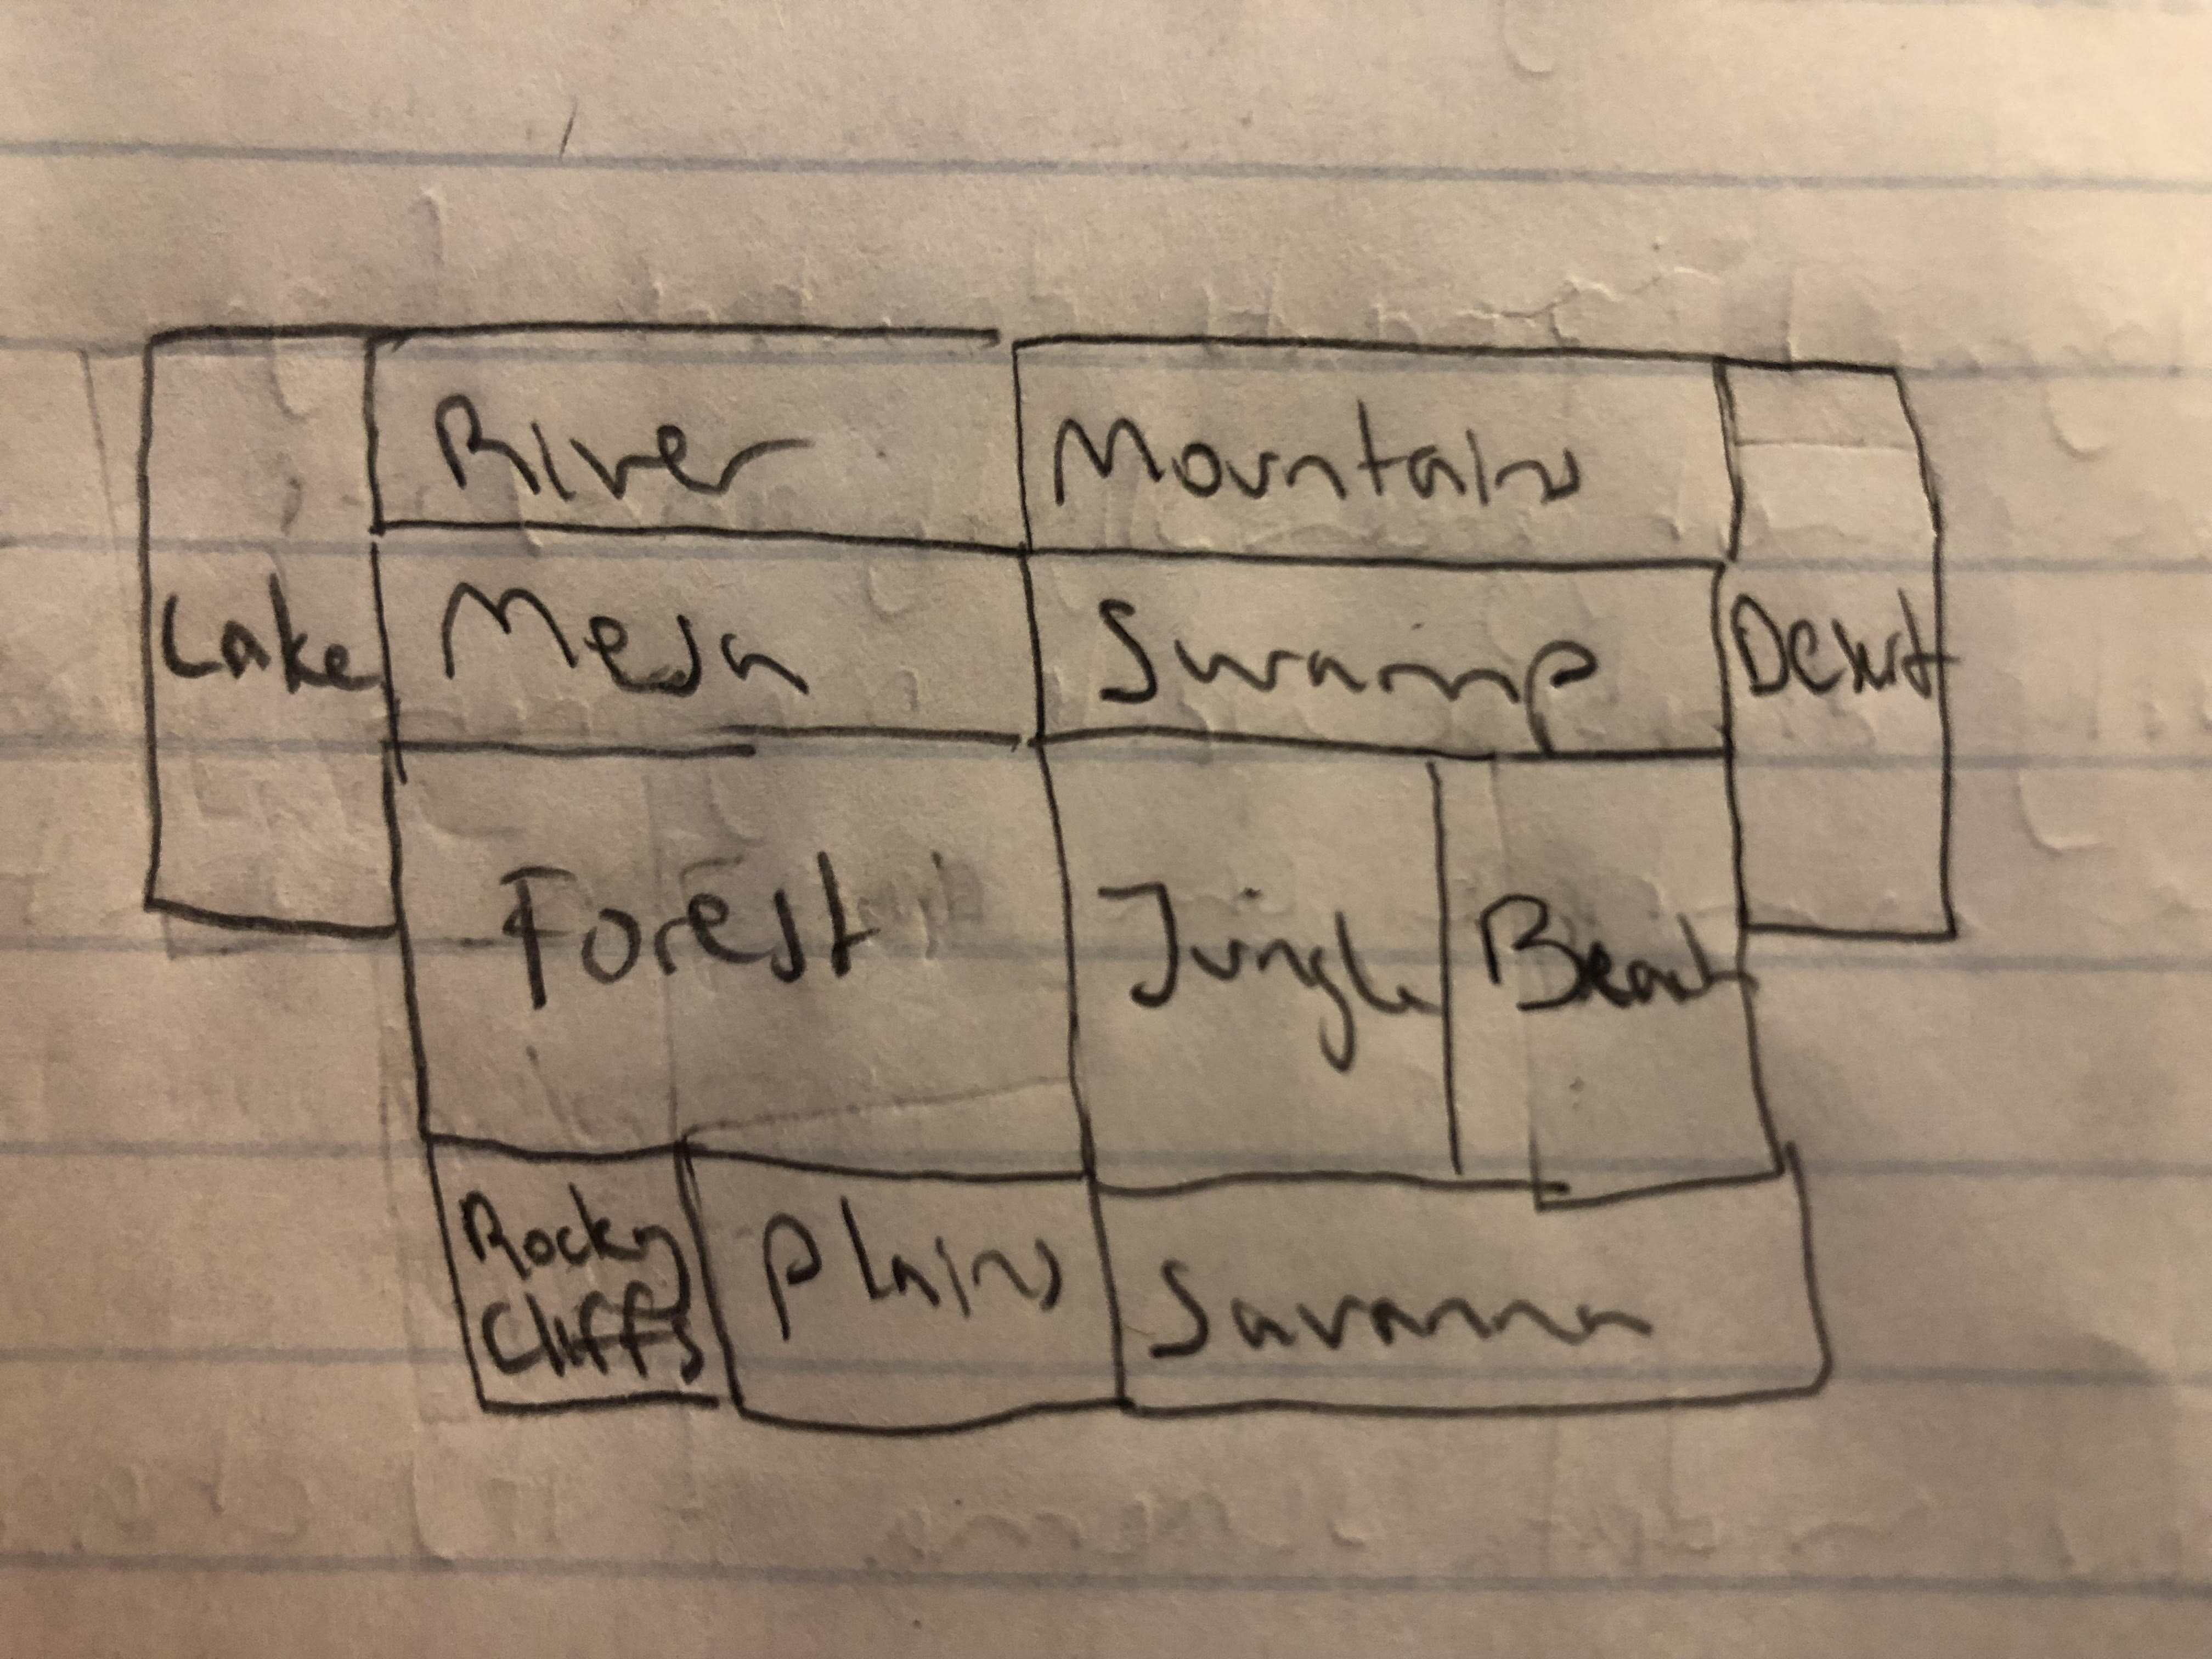 River Mountains
Lake Mesa Swamp Desert
Forest Jungle Beach
Rocky Plains Savanna
Cliffs